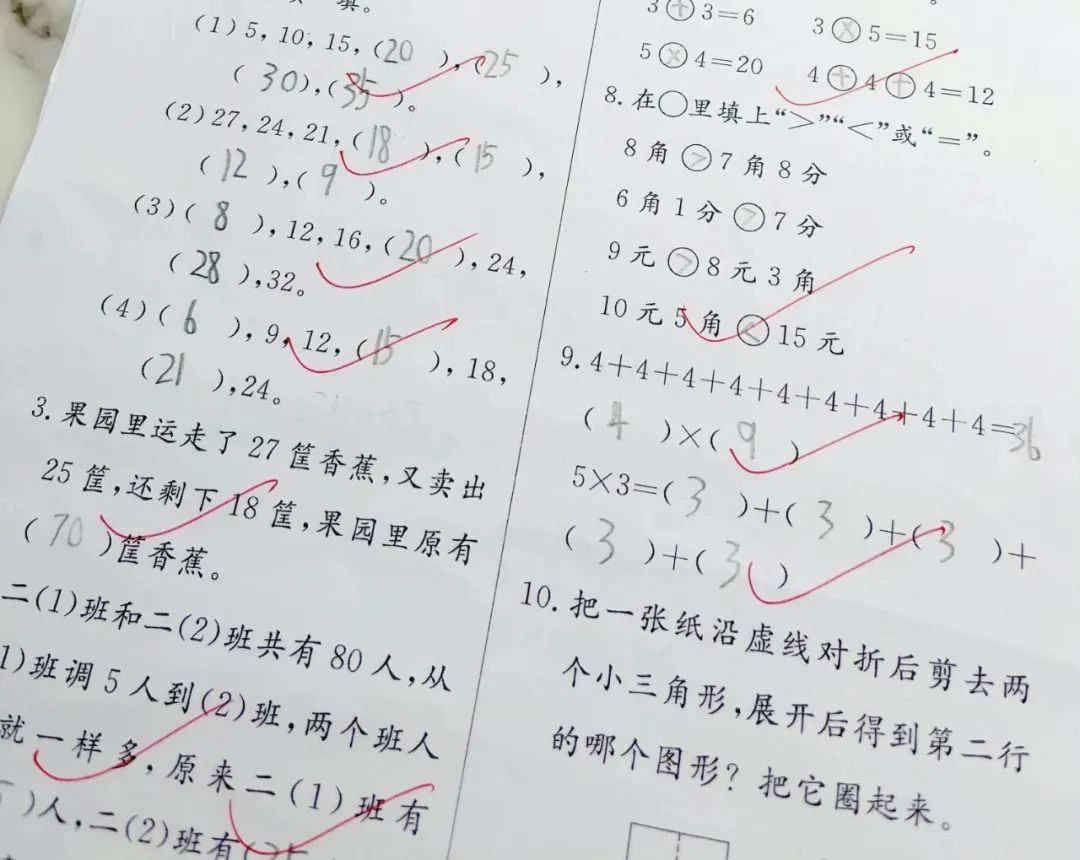 (1)5,10,15,(20),(25),
(30),(35)。
(2)27,24,21,(18),(15),
(12),(9)。
(3)(8),12,16,(20),24,
(28),32。
(4)(6),9,12,(15),18,
(21),24。
3.果园里运走了27筐香蕉,又卖出
25筐,还剩下18筐,果园里原有
(70)筐香蕉。
二(1)班和二(2)班共有80人,从
1)班调5人到(2)班,两个班人
就一样多,原来二(1)班有
)人,二(2)班有(35
3+3=6 3×5=15
5×4=20 4+4+4=12
8.在○里填上“>”“<”或“=”。
8角>7角8分
6角1分>7分
9元>8元3角
10元5角<15元
9.4+4+4+4+4+4+4+4+4=36
(4)×(9)
5×3=(3)+(3)+(3)+
(3)+(3)
10.把一张纸沿虚线对折后剪去两
个小三角形,展开后得到第二行
的哪个图形?把它圈起来。